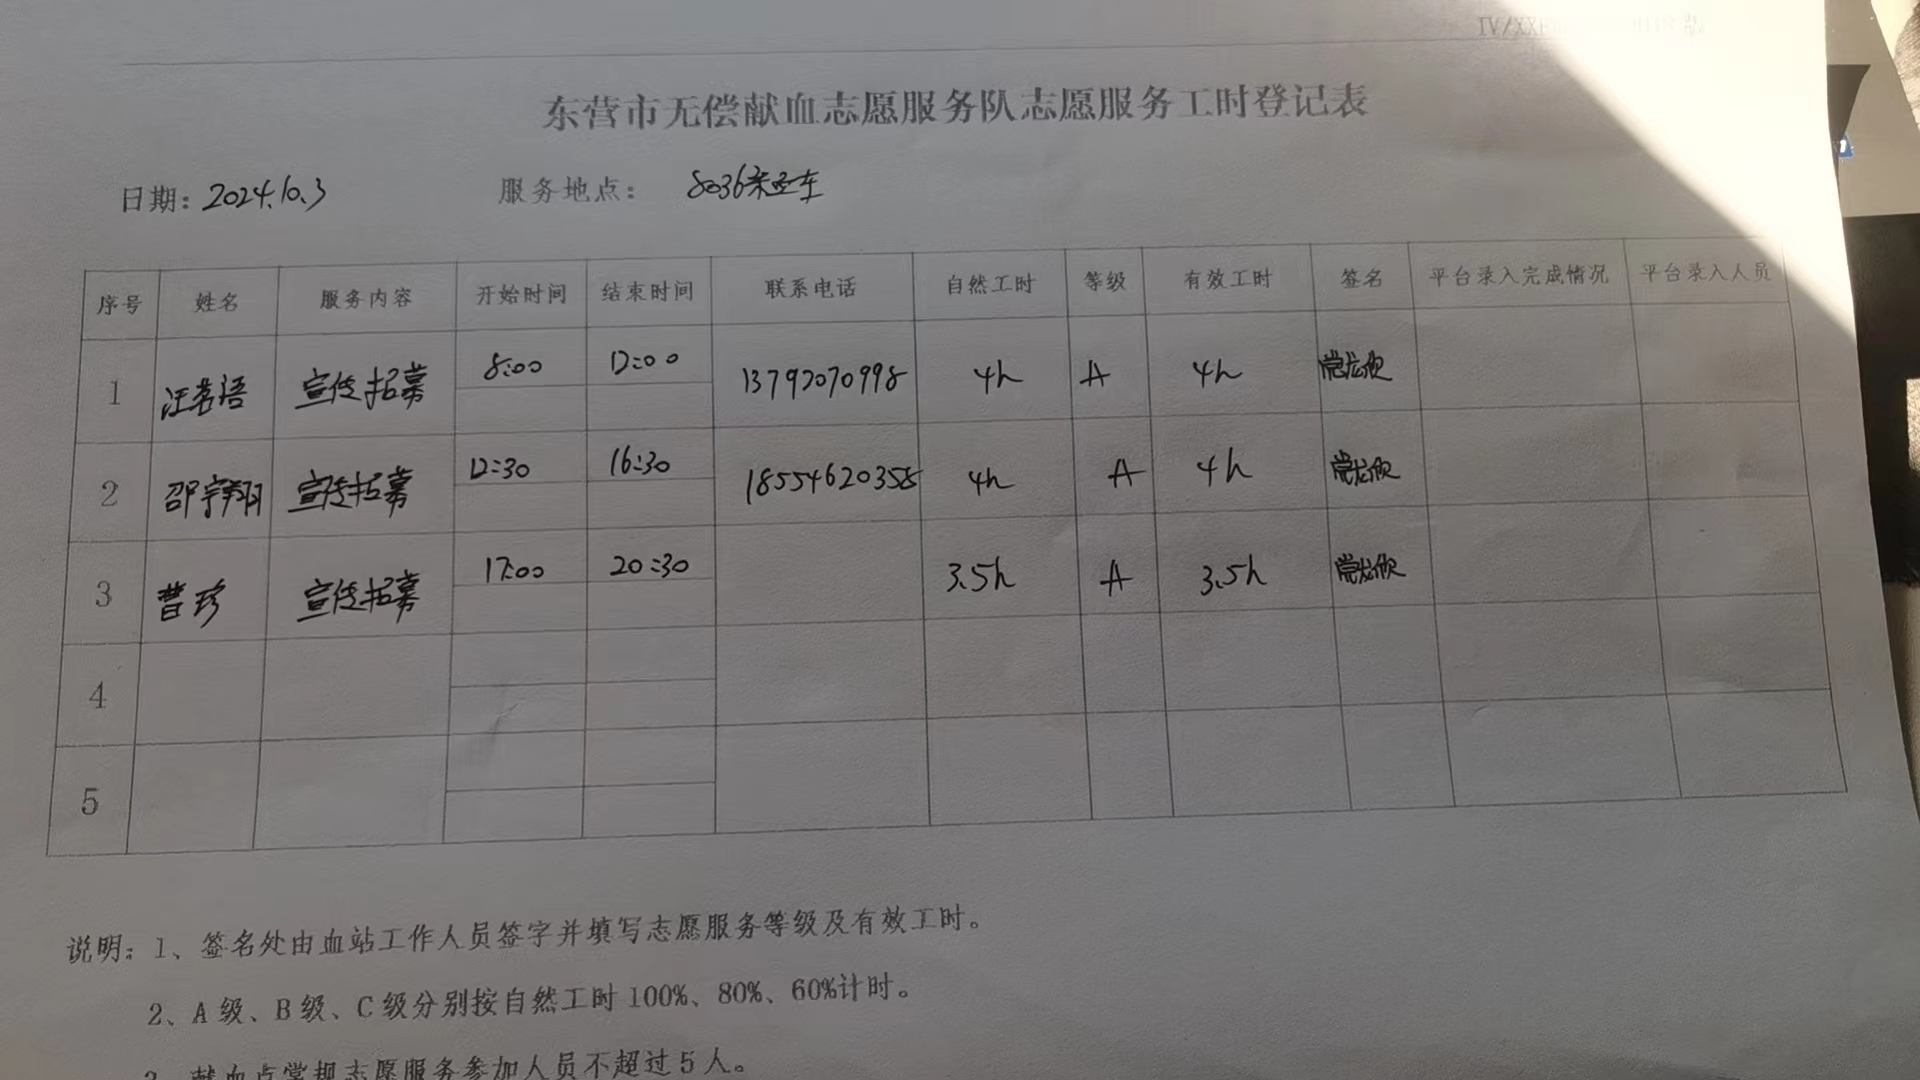 东营市无偿献血志愿服务队志愿服务工时登记表
日期：2024.10.3 服务地点： 8036采血车
序号 姓名 服务内容 开始时间 结束时间 联系电话 自然工时 等级 有效工时 签名 平台录入完成情况 平台录入人员
1 汪茗语 宣传招募 8:00 12:00 13792070998 4h A 4h
2 邵宇翔 宣传招募 12:30 16:30 18554620358 4h A 4h
3 曹珍 宣传招募 17:00 20:30 3.5h A 3.5h
4
5
说明：1、签名处由血站工作人员签字并填写志愿服务等级及有效工时。
2、A级、B级、C级分别按自然工时100%、80%、60%计时。
3、献血点常规志愿服务参加人员不超过5人。